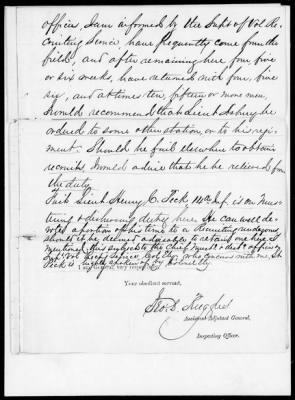 officer, I am informed by the Supt of Vol Re-
cruiting Service, have frequently come from the
field, and after remaining here four, five
or six weeks, have returned with four, five
six, and at times ten, fifteen or more men.
I would recommend that Lieut be
ordered to some other station, or to his regi-
ment. Should he fail elsewhere to obtain
recruits I would advise that he be relieved from
the duty.
First Lieut Henry C. 14th Inf. is on Mus-
tering & disbursing duty here. He can well de-
vote a portion of his time to a Recruiting rendezvous
should it be deemed advisable to retain one here. I
mentioned this subject to the Chief Must. & disb. officer &
Supt Vol Rectg Service, who concurs with me, Lt
is
I am Sir, very respectfully,
Your obedient servant,
Geo. D. Ruggles
Assistant Adjutant General,
Inspecting Officer.